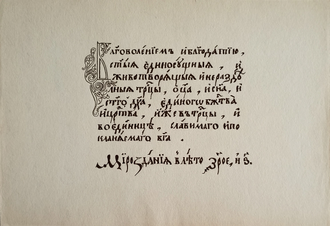 Бл҃говоленїемъ и благодатїю,
ст҃ыѧ единосꙋщныѧ, и
животворѧщыѧ и нераздѣ
лныѧ трⷪ҇цы, оц҃а, и сн҃а, и
ст҃го дх҃а, единого бж҃ества
и црⷭ҇тва, иже въ трⷪ҇цы, и
во единицѣ, славимаго и по
кланѧемаго бг҃а.
Мїрозданїѧ в лѣто